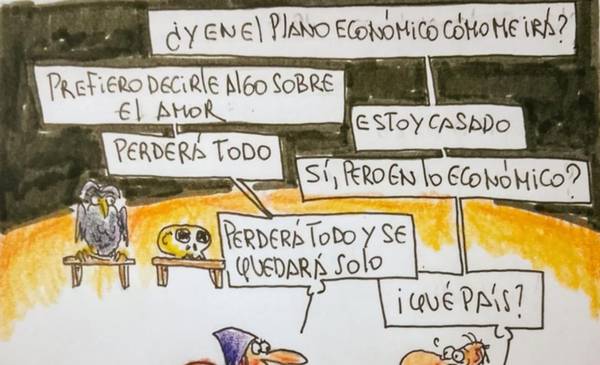 ¿Y EN EL PLANO ECONÓMICO CÓMO ME IRÁ?
PREFIERO DECIRLE ALGO SOBRE
EL AMOR
ESTOY CASADO
PERDERÁ TODO
SÍ, PERO EN LO ECONÓMICO?
PERDERÁ TODO Y SE
QUEDARÁ SOLO
¡QUÉ PAÍS?